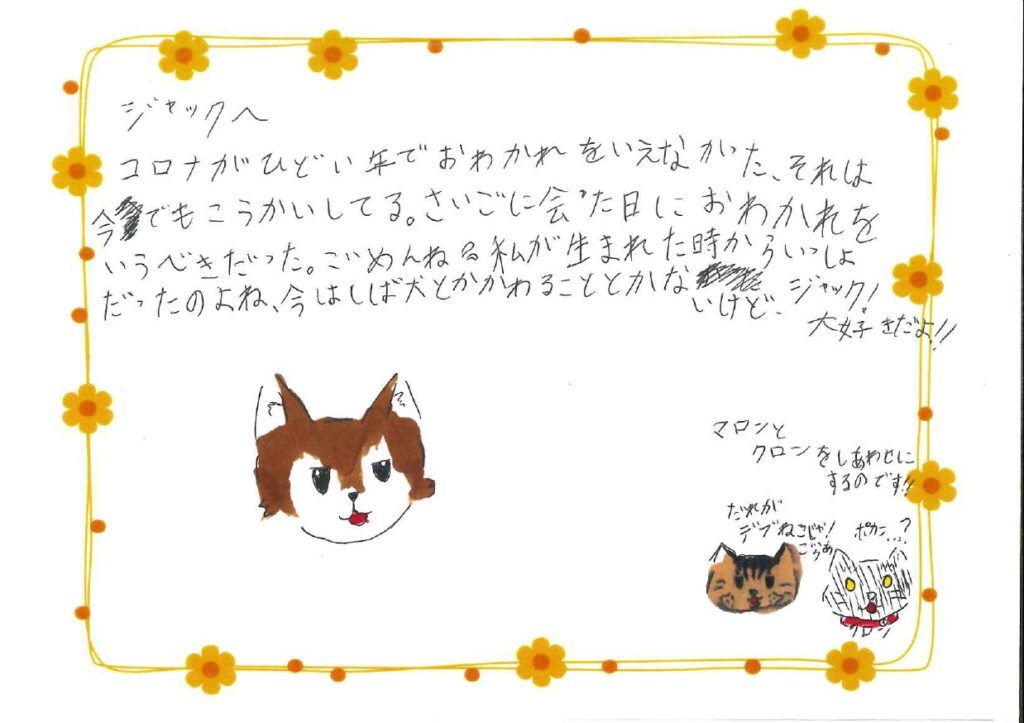 ジャックへ
コロナがひどい年でおわかれをいえなかった、それは
今でもこうかいしてる。さいごに会った日におわかれを
いうべきだった。ごめんねる私が生まれた時からいっしょ
だったのよね、今はしば犬とかかわることとかな
いけど、ジャック!
大好きだよ!!
マロンと
クロンをしあわせに
するのです!!
だれが
デブねこじゃ!
ごらぁ
ポカン…?
クロン